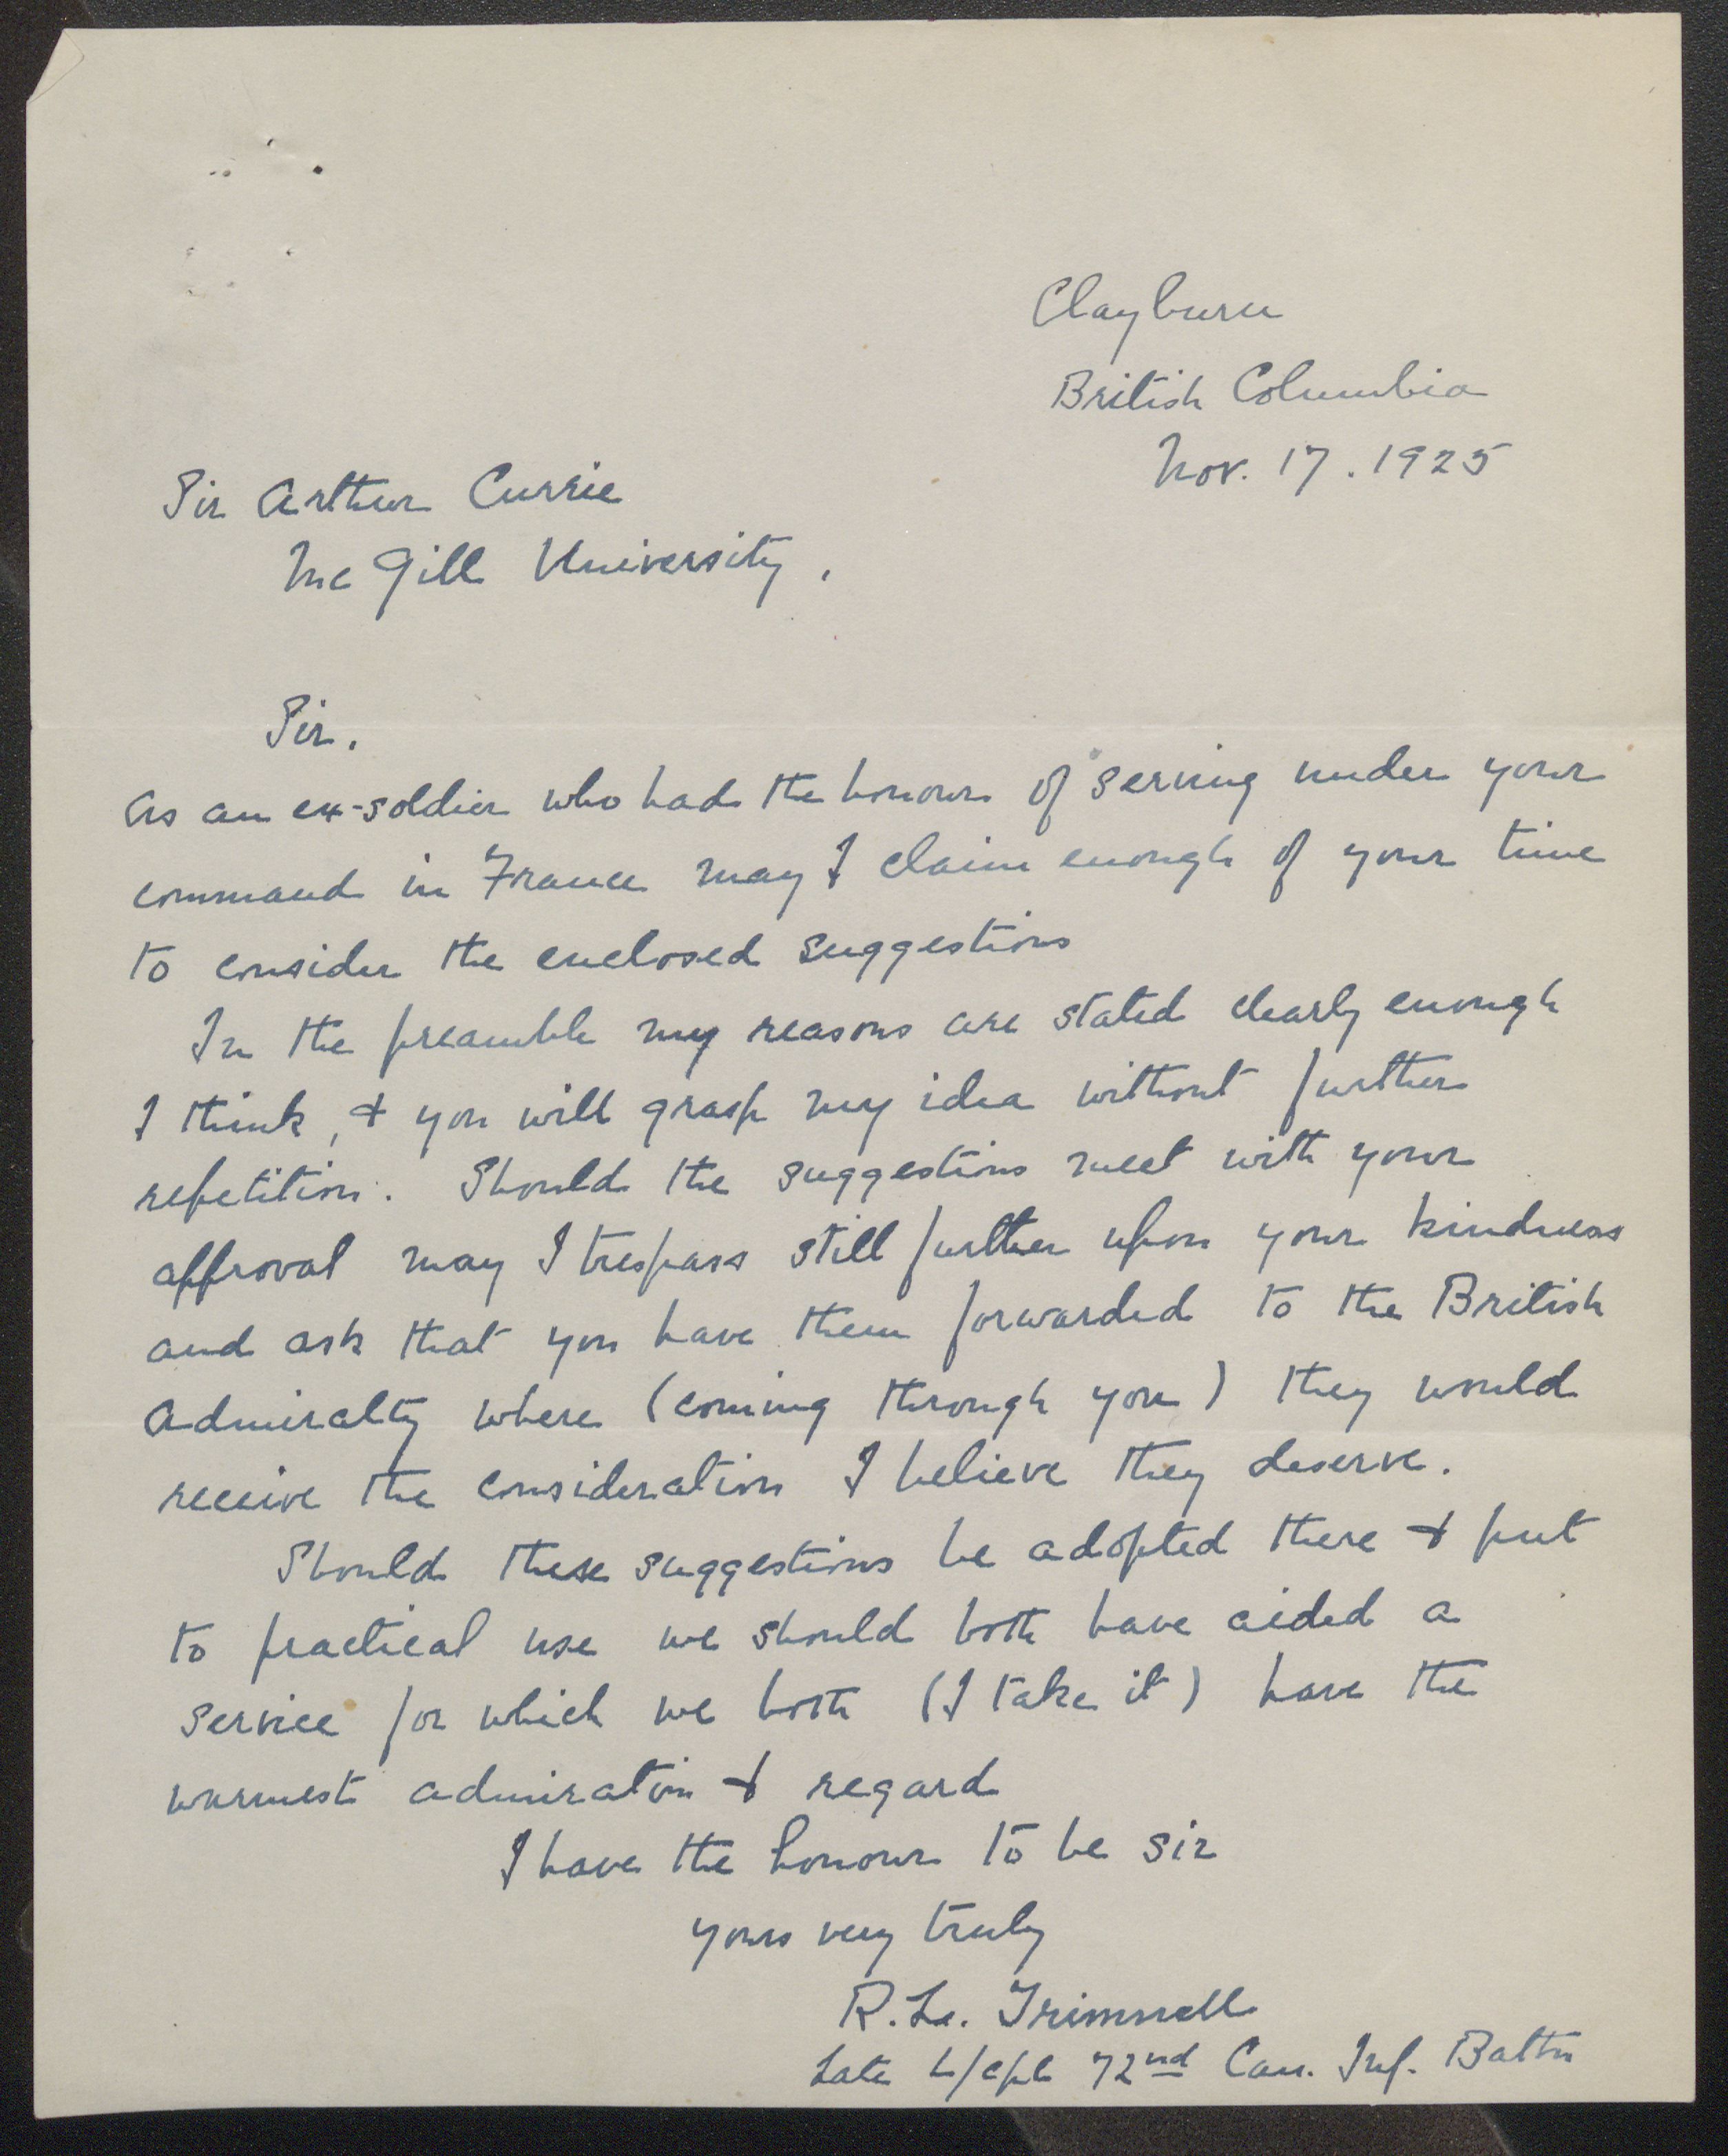 Clayburn
British Columbia
Nov. 17. 1925
Sir Arthur Currie
McGill University,
Sir.
As an ex-soldier who had the honour of serving under your
command in France may I claim enough of your time
to consider the enclosed suggestions
In the preamble my reasons are stated clearly enough
I think, & you will grasp my idea without further
repetition. Should the suggestions meet with your
approval may I trespass still further upon your kindness
and ask that you have them forwarded to the British
Admiralty where (coming through you) they would
receive the consideration I believe they deserve.
Should these suggestions be adopted there & put
to practical use we should both have aided a
service for which we both (I take it) have the
warmest admiration & regard
I have the honour to be sir
yours very truly
R. L. Trimnell
Late L/cpl 72nd Can. Inf. Battn